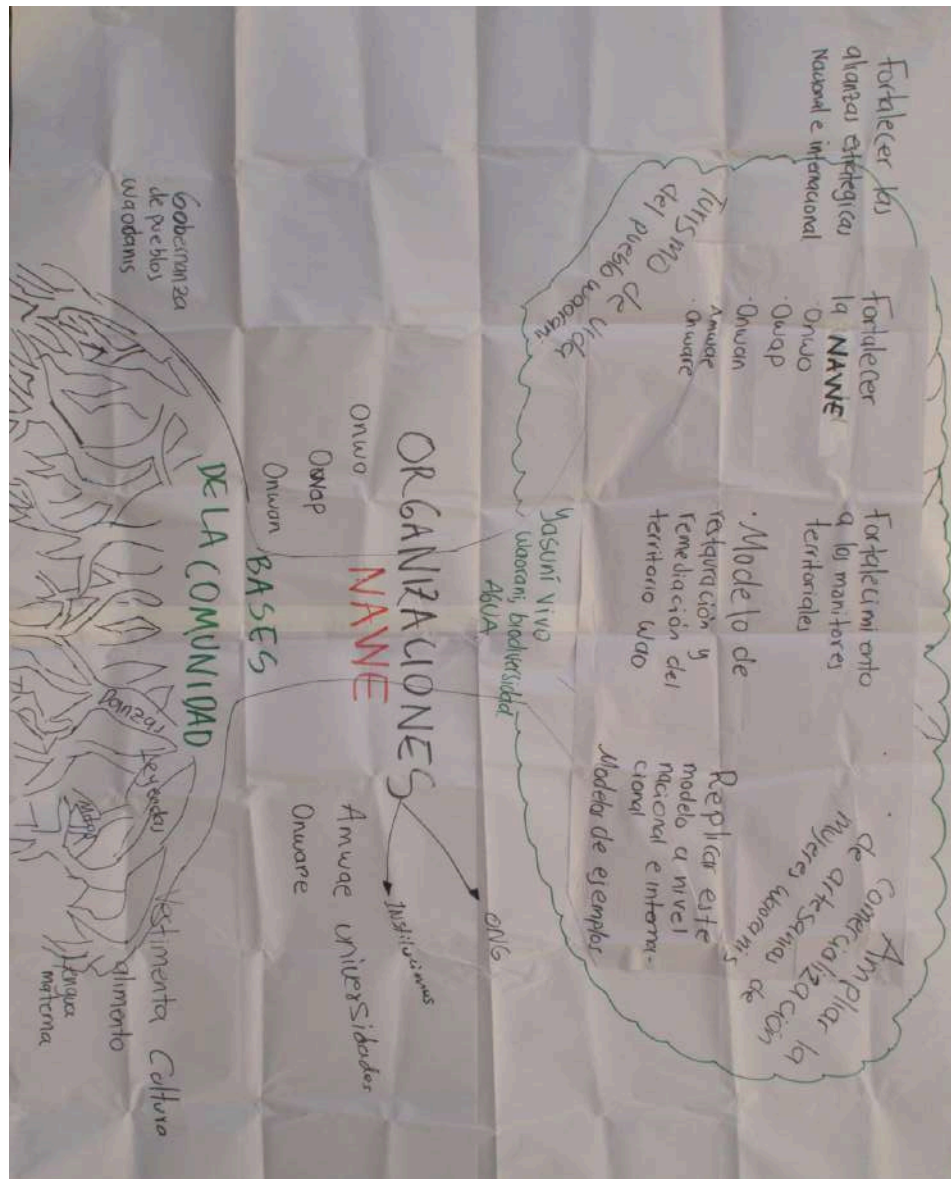 Fortalecer las
alianzas estratégicas
Nacional e internacional
Fortalecer
la NAWE
· Onwo
· Owap
· Onwan
· Amwae
· Onware
Fortalecimiento
a los monitores
territoriales
· Modelo de
restauración y
remediación del
territorio wao
· Ampliar la
comercialización
de artesanias de
mujeres waoranis
Replicar este
modelo a nivel
nacional e interna-
cional
Modelor de ejemplos
Turismo de vida
del pueblo waorani
Yasuní vivo
waorani, biodiversidad
AGUA
ORGANIZACIONES
NAWE
ONG
Instituciones
Onwo
Owap
Onwan
Amwae universidades
Onware
BASES
DE LA COMUNIDAD
Gobernanza
de pueblos
waodanis
Danzas
Leyendas
Vestimenta Cultura
alimento
Lengua
materna